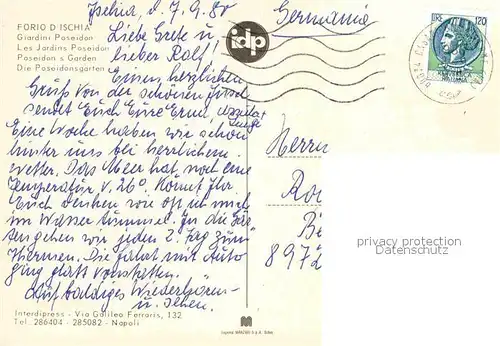 Ischia d. 7.9.80
Germania
FORIO D'ISCHIA
Giardini Poseidon
Les Jardins Poseidon
Poseidon s Garden
Die Poseidonsgärten
idp
LIRE 120
Liebe Grete u.
lieber Rolf!
Einen herzlichen
Gruß von der schönen Insel
sendet Euch Eure Erna
Eine Woche haben wir schon
hinter uns bei herrlichem
Wetter. Das Meer hat noch eine
Temperatur v. 26°. Könnt Ihr
Euch denken wie oft ich mich
im Wasser tummel. In die
gehen wir jeden 2. Tag zum
Thermen. Die Fahrt mit Auto
ging glatt vonstatten.
Auf baldiges Wiederhören
u. sehen.
Herrn
Ro
8972
privacy protection
watermark
Interdipress - Via Galileo Ferraris, 132
Tel. 286404 - 285082 - Napoli